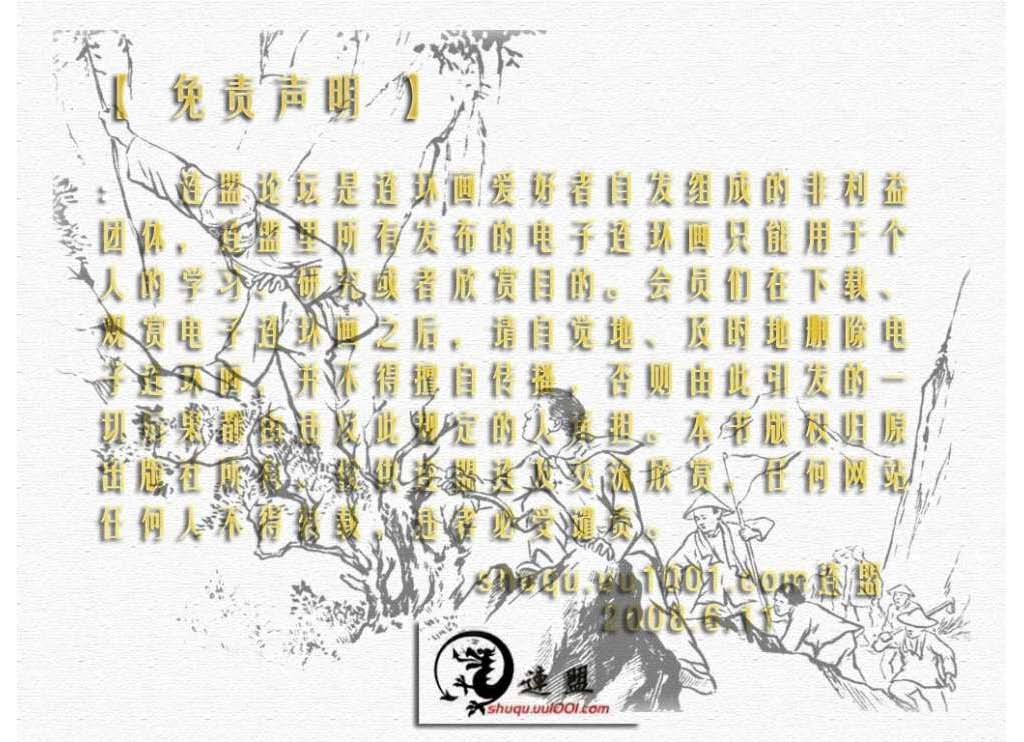 【 免责声明 】
: 连盟论坛是连环画爱好者自发组成的非利益
团体，连盟里所有发布的电子连环画只能用于个
人的学习、研究或者欣赏目的。会员们在下载、
观赏电子连环画之后，请自觉地、及时地删除电
子连环画，并不得擅自传播，否则由此引发的一
切后果都由违反此规定的人承担。本书版权归原
出版社所有，仅供连盟连友交流欣赏，任何网站
任何人不得转载，违者必受谴责。
shuqu.uu1001.com连盟
2008.6.11
連盟
shuqu.uu1001.com